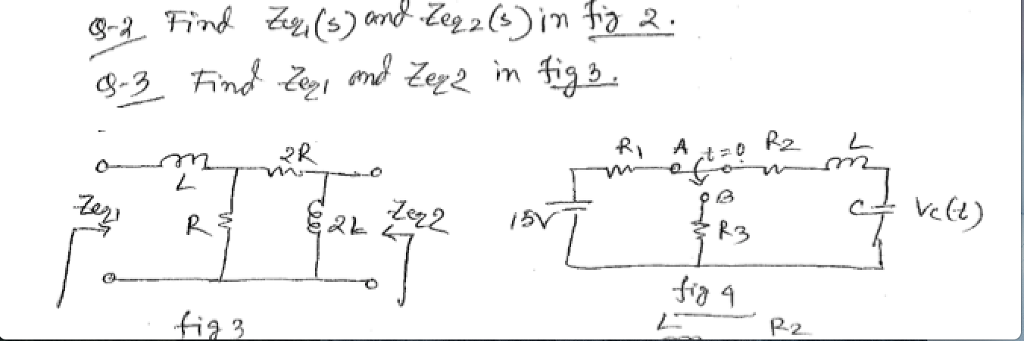 Q-2 Find Zeq1(s) and Zeq2(s) in fig 2.
Q-3 Find Zeq1 and Zeq2 in fig 3.
L
2R
Zeq1
R
2L
Zeq2
fig 3
R1 A t=0 R2 L
B
15V
R3
C
Vc(t)
fig 4
L
R2